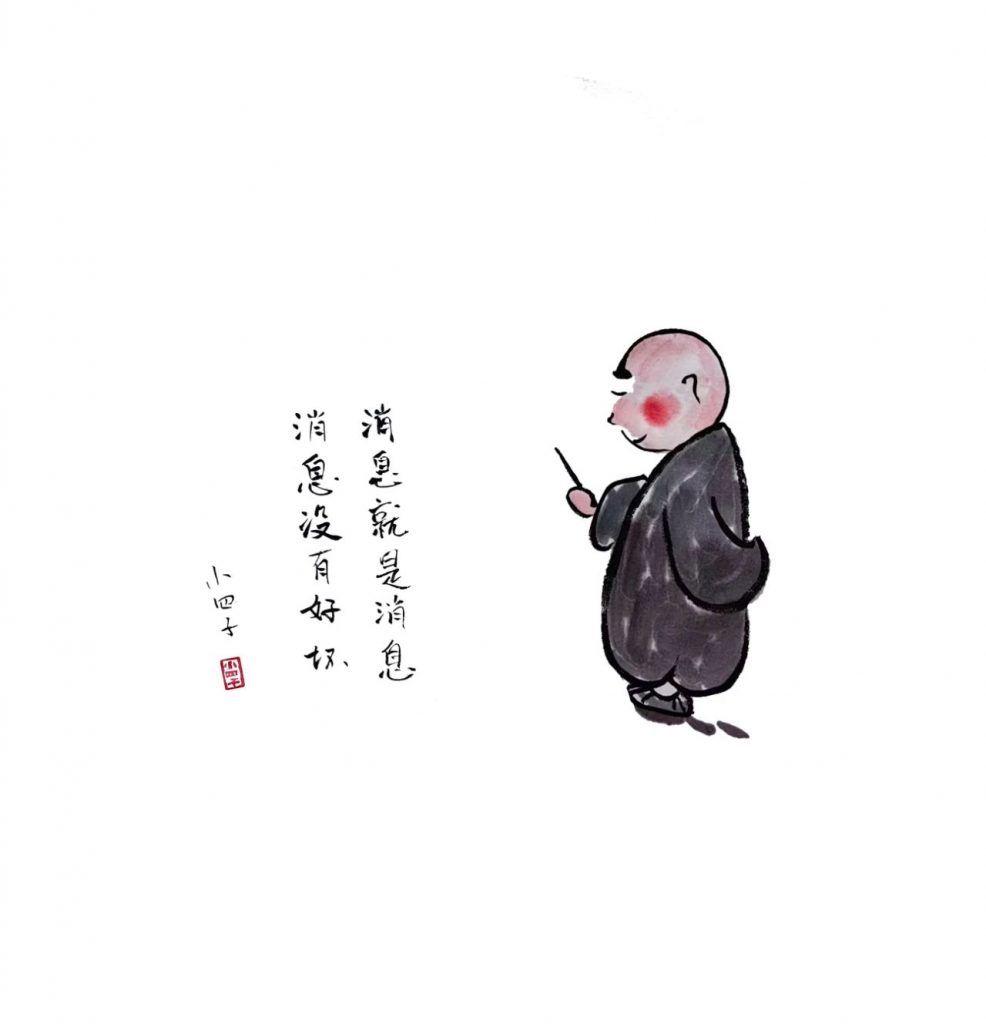 消息就是消息
消息没有好坏
小四子
小四子